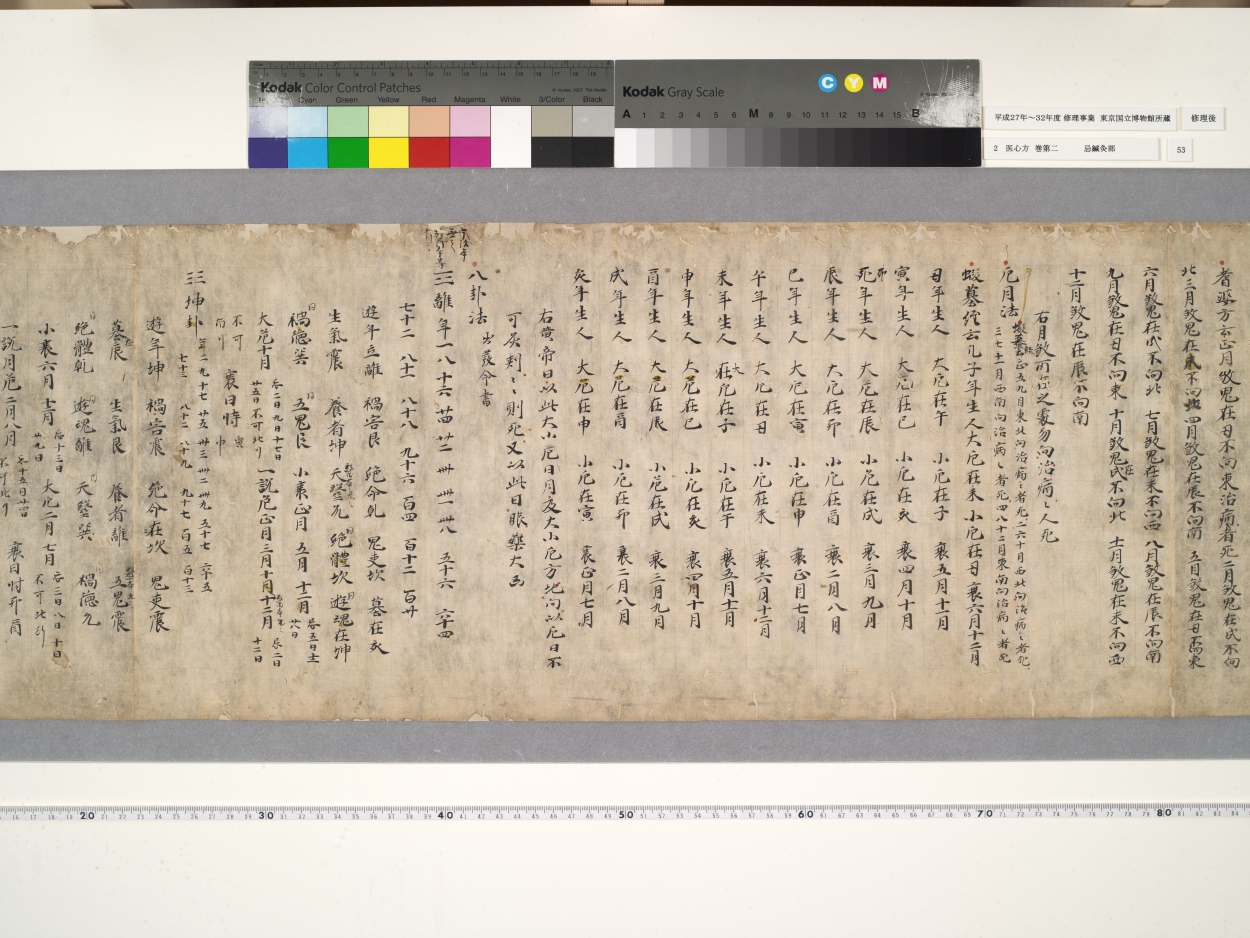 Kodak Color Control Patches
Blue Cyan Green Yellow Red Magenta White 3/Color Black
Kodak Gray Scale
C Y M
A 1 2 3 4 5 6 M 8 9 10 11 12 13 14 15 B
平成27年~32年度 修理事業 東京国立博物館所蔵
修理後
2 医心方 巻第二 忌鍼灸部
53
者 方云正月煞鬼在丑不向東治病者死二月煞鬼在戌不向
北三月煞鬼在 不向 四月煞鬼在辰不向南 五月煞鬼在丑不向東
六月煞鬼在戌不向北 七月煞鬼在未不向西 八月煞鬼在辰不向南
九月煞鬼在丑不向東 十月煞鬼在戌不向北 十一月煞鬼在未不向西
十二月煞鬼在辰不向南
右月煞所在之處勿向治病々人死
厄月法 正五九月東北向治病々者死二六十月西北向治病々者死
三七十一月西南向治病々者死四八十二月東南向治病々者死
蝦蟇経云凡子年生人大厄在未 小厄在丑 衰六月十二月
丑年生人 大厄在午 小厄在子 衰五月十一月
寅年生人 大厄在巳 小厄在亥 衰四月十月
卯年生人 大厄在辰 小厄在戌 衰三月九月
辰年生人 大厄在卯 小厄在酉 衰二月八月
巳年生人 大厄在寅 小厄在申 衰正月七月
午年生人 大厄在丑 小厄在未 衰六月十二月
未年生人 大厄在子 小厄在午 衰五月十一月
申年生人 大厄在巳 小厄在亥 衰四月十月
酉年生人 大厄在辰 小厄在戌 衰三月九月
戌年生人 大厄在酉 小厄在卯 衰二月八月
亥年生人 大厄在申 小厄在寅 衰正月七月
右黄帝曰以此大小厄日月及大小厄方地向以厄日不
可灸刺々々則死又以此日服藥大凶
八卦法 出 令書
三離 年一 八 十六 廿四 廿二 卌 卌一 卌八 五十六 六十四
七十二 八十一 八十八 九十六 百四 百十二 百廿
遊年在離 禍害艮 絶命乹 鬼吏坎 墓在亥
生氣震 養者坤 天醫 絶體坎 遊魂在坤
禍德巽 五鬼艮 小衰正月 五月 十二月
大厄十月 一説厄正月三月十月十二月
不可 衰日時 寅申
三坤卦 年二 九 十七 廿五 卅三 卌二 卌九 五十七 六十五
七十三 八十二 八十九 九十七 百五 百十三
遊年坤 禍害震 絶命在坎 鬼吏震
墓辰 生氣艮 養者離 五鬼震
絶體乹 遊魂離 天醫巽 禍德
小衰六月 七月 大厄二月 七月
一説月厄二月八月 衰日時卯酉
20 30 40 50 60 70 80